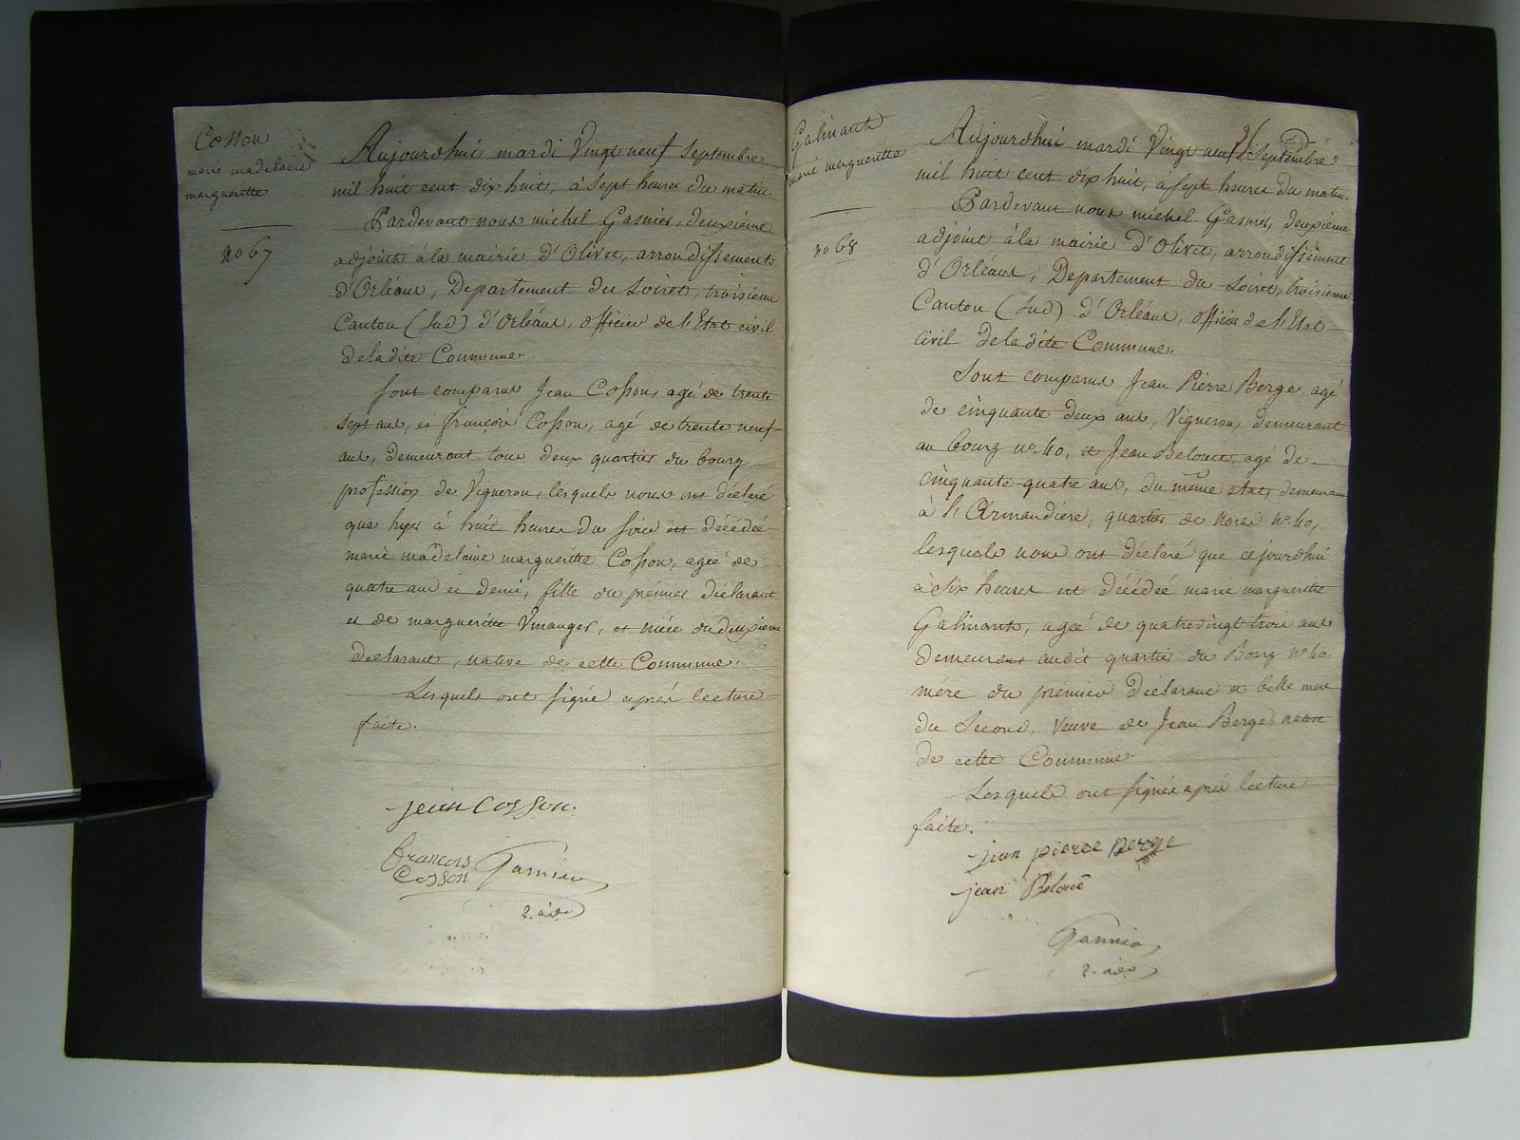 Cosson
marie madelaine
margueritte
no 67
Aujourdhui mardi Vingt neuf Septembre
mil huit cent dix huit, à Sept heures du matin
Pardevant nous michel Gasnier, deuxième
adjoint à la mairie d'Olivet, arrondissement
d'Orléans, Departement du Loiret, troisieme
Canton (Sud) d'Orléans, officier de l'Etat civil
de la dite Commune.
Sont comparus Jean Cosson, agé de trente
sept ans, et françois Cosson, agé de trente neuf
ans, demeurant tous deux quartier du bourg
profession de Vigneron, lesquels nous ont déclaré
que hyer à huit heures du soir est décédée
marie madelaine margueritte Cosson, agée de
quatre ans et demi, fille du prémier déclarant
et de margueritte Vmanger, et niéce du deuxieme
declarant, native de cette Commune.
Lesquels ont signé après lecture
faite.
jean Cosson.
francois
Cosson
Gasnier
2. adj
Galinant
marie margueritte
no 68
Aujourdhui mardi Vingt neuf Septembre
mil huit cent dix huit, à sept heures du matin.
Pardevant nous michel Gasnier, deuxiéme
adjoint à la mairie d'Olivet, arrondissement
d'Orléans, Departement du Loiret, troisieme
Canton (Sud) d'Orléans, officier de l'Etat
civil de la dite Commune.
Sont comparus Jean Pierre Berge agé
de cinquante deux ans, Vigneron, demeurant
au bourg no 40, et Jean Beloue, agé de
cinquante quatre ans, du même etat, demeurant
à l'Armandiere, quartier de no 40,
lesquels nous ont déclaré que cejourdhui
à six heures est décédée marie margueritte
Galinant, agée de quatrevingt trois ans
demeurant audit quartier du Bourg no 40
mére du prémier déclarant et belle mere
du Second, Veuve de Jean Berge native
de cette Commune.
Lesquels ont signé après lecture
faite.
jean pierre Berge
jean Beloue
Gasnier
2. adj